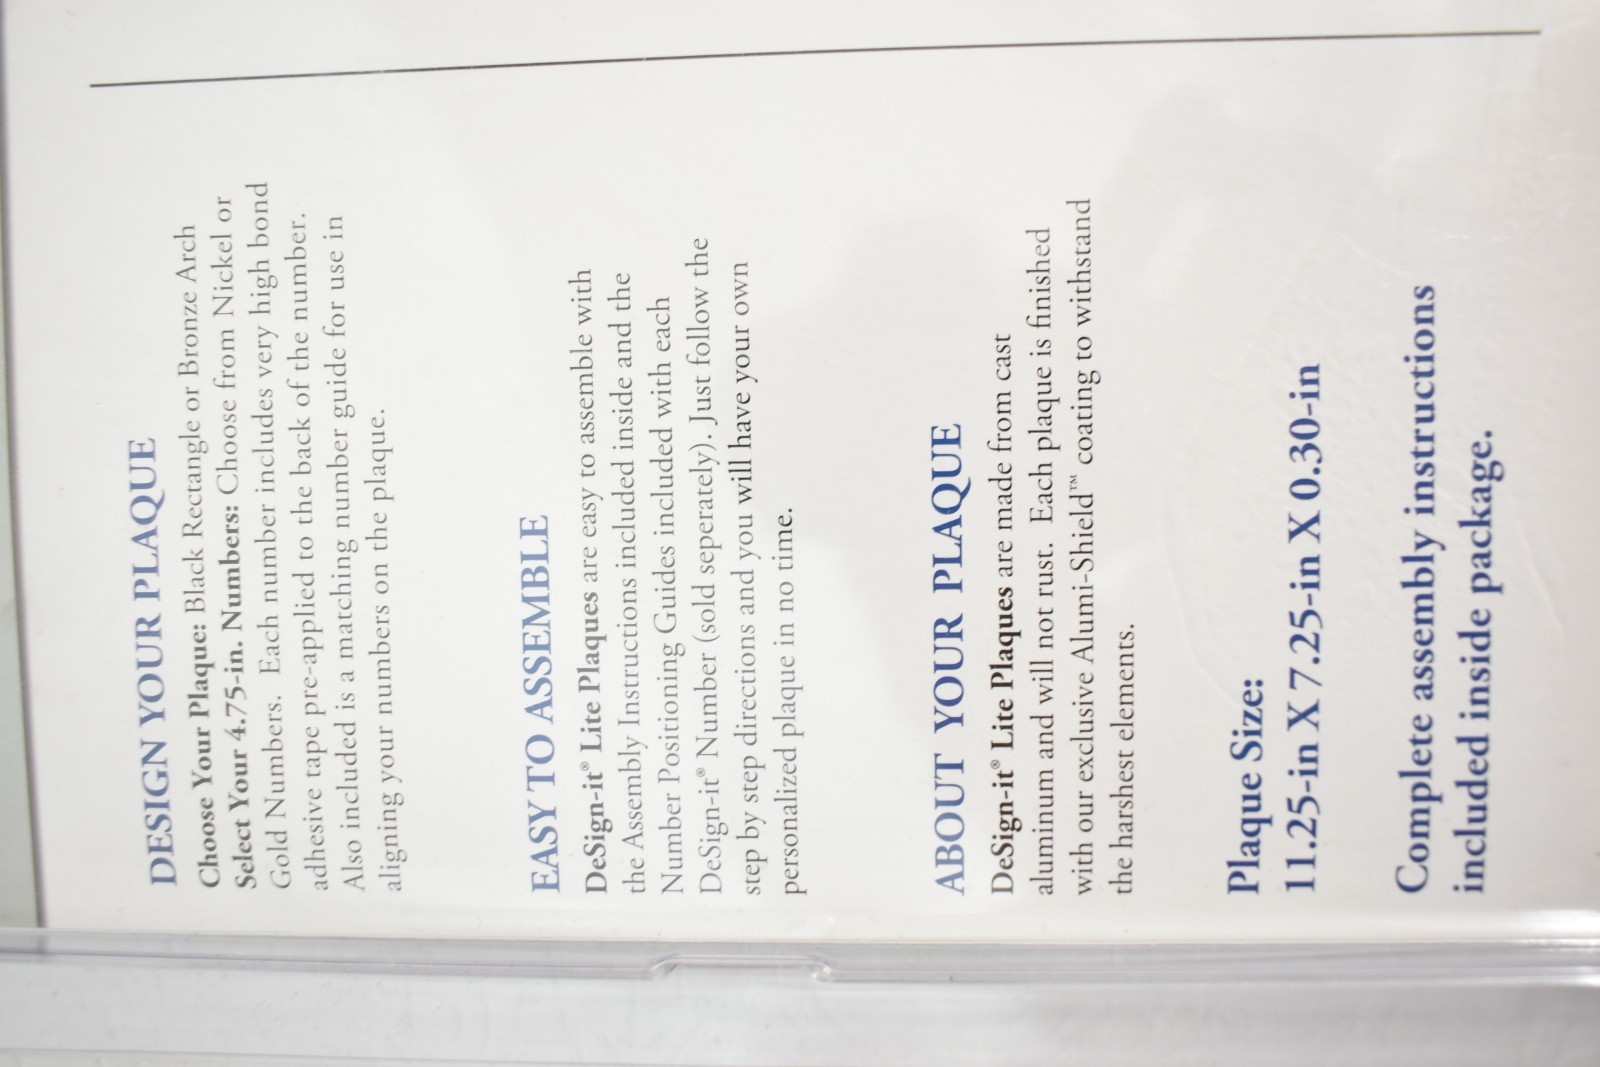 DESIGN YOUR PLAQUE
Choose Your Plaque: Black Rectangle or Bronze Arch
Select Your 4.75-in. Numbers: Choose from Nickel or
Gold Numbers. Each number includes very high bond
adhesive tape pre-applied to the back of the number.
Also included is a matching number guide for use in
aligning your numbers on the plaque.
EASY TO ASSEMBLE
DeSign-it® Lite Plaques are easy to assemble with
the Assembly Instructions included inside and the
Number Positioning Guides included with each
DeSign-it® Number (sold seperately). Just follow the
step by step directions and you will have your own
personalized plaque in no time.
ABOUT YOUR PLAQUE
DeSign-it® Lite Plaques are made from cast
aluminum and will not rust. Each plaque is finished
with our exclusive Alumi-Shield™ coating to withstand
the harshest elements.
Plaque Size:
11.25-in X 7.25-in X 0.30-in
Complete assembly instructions
included inside package.